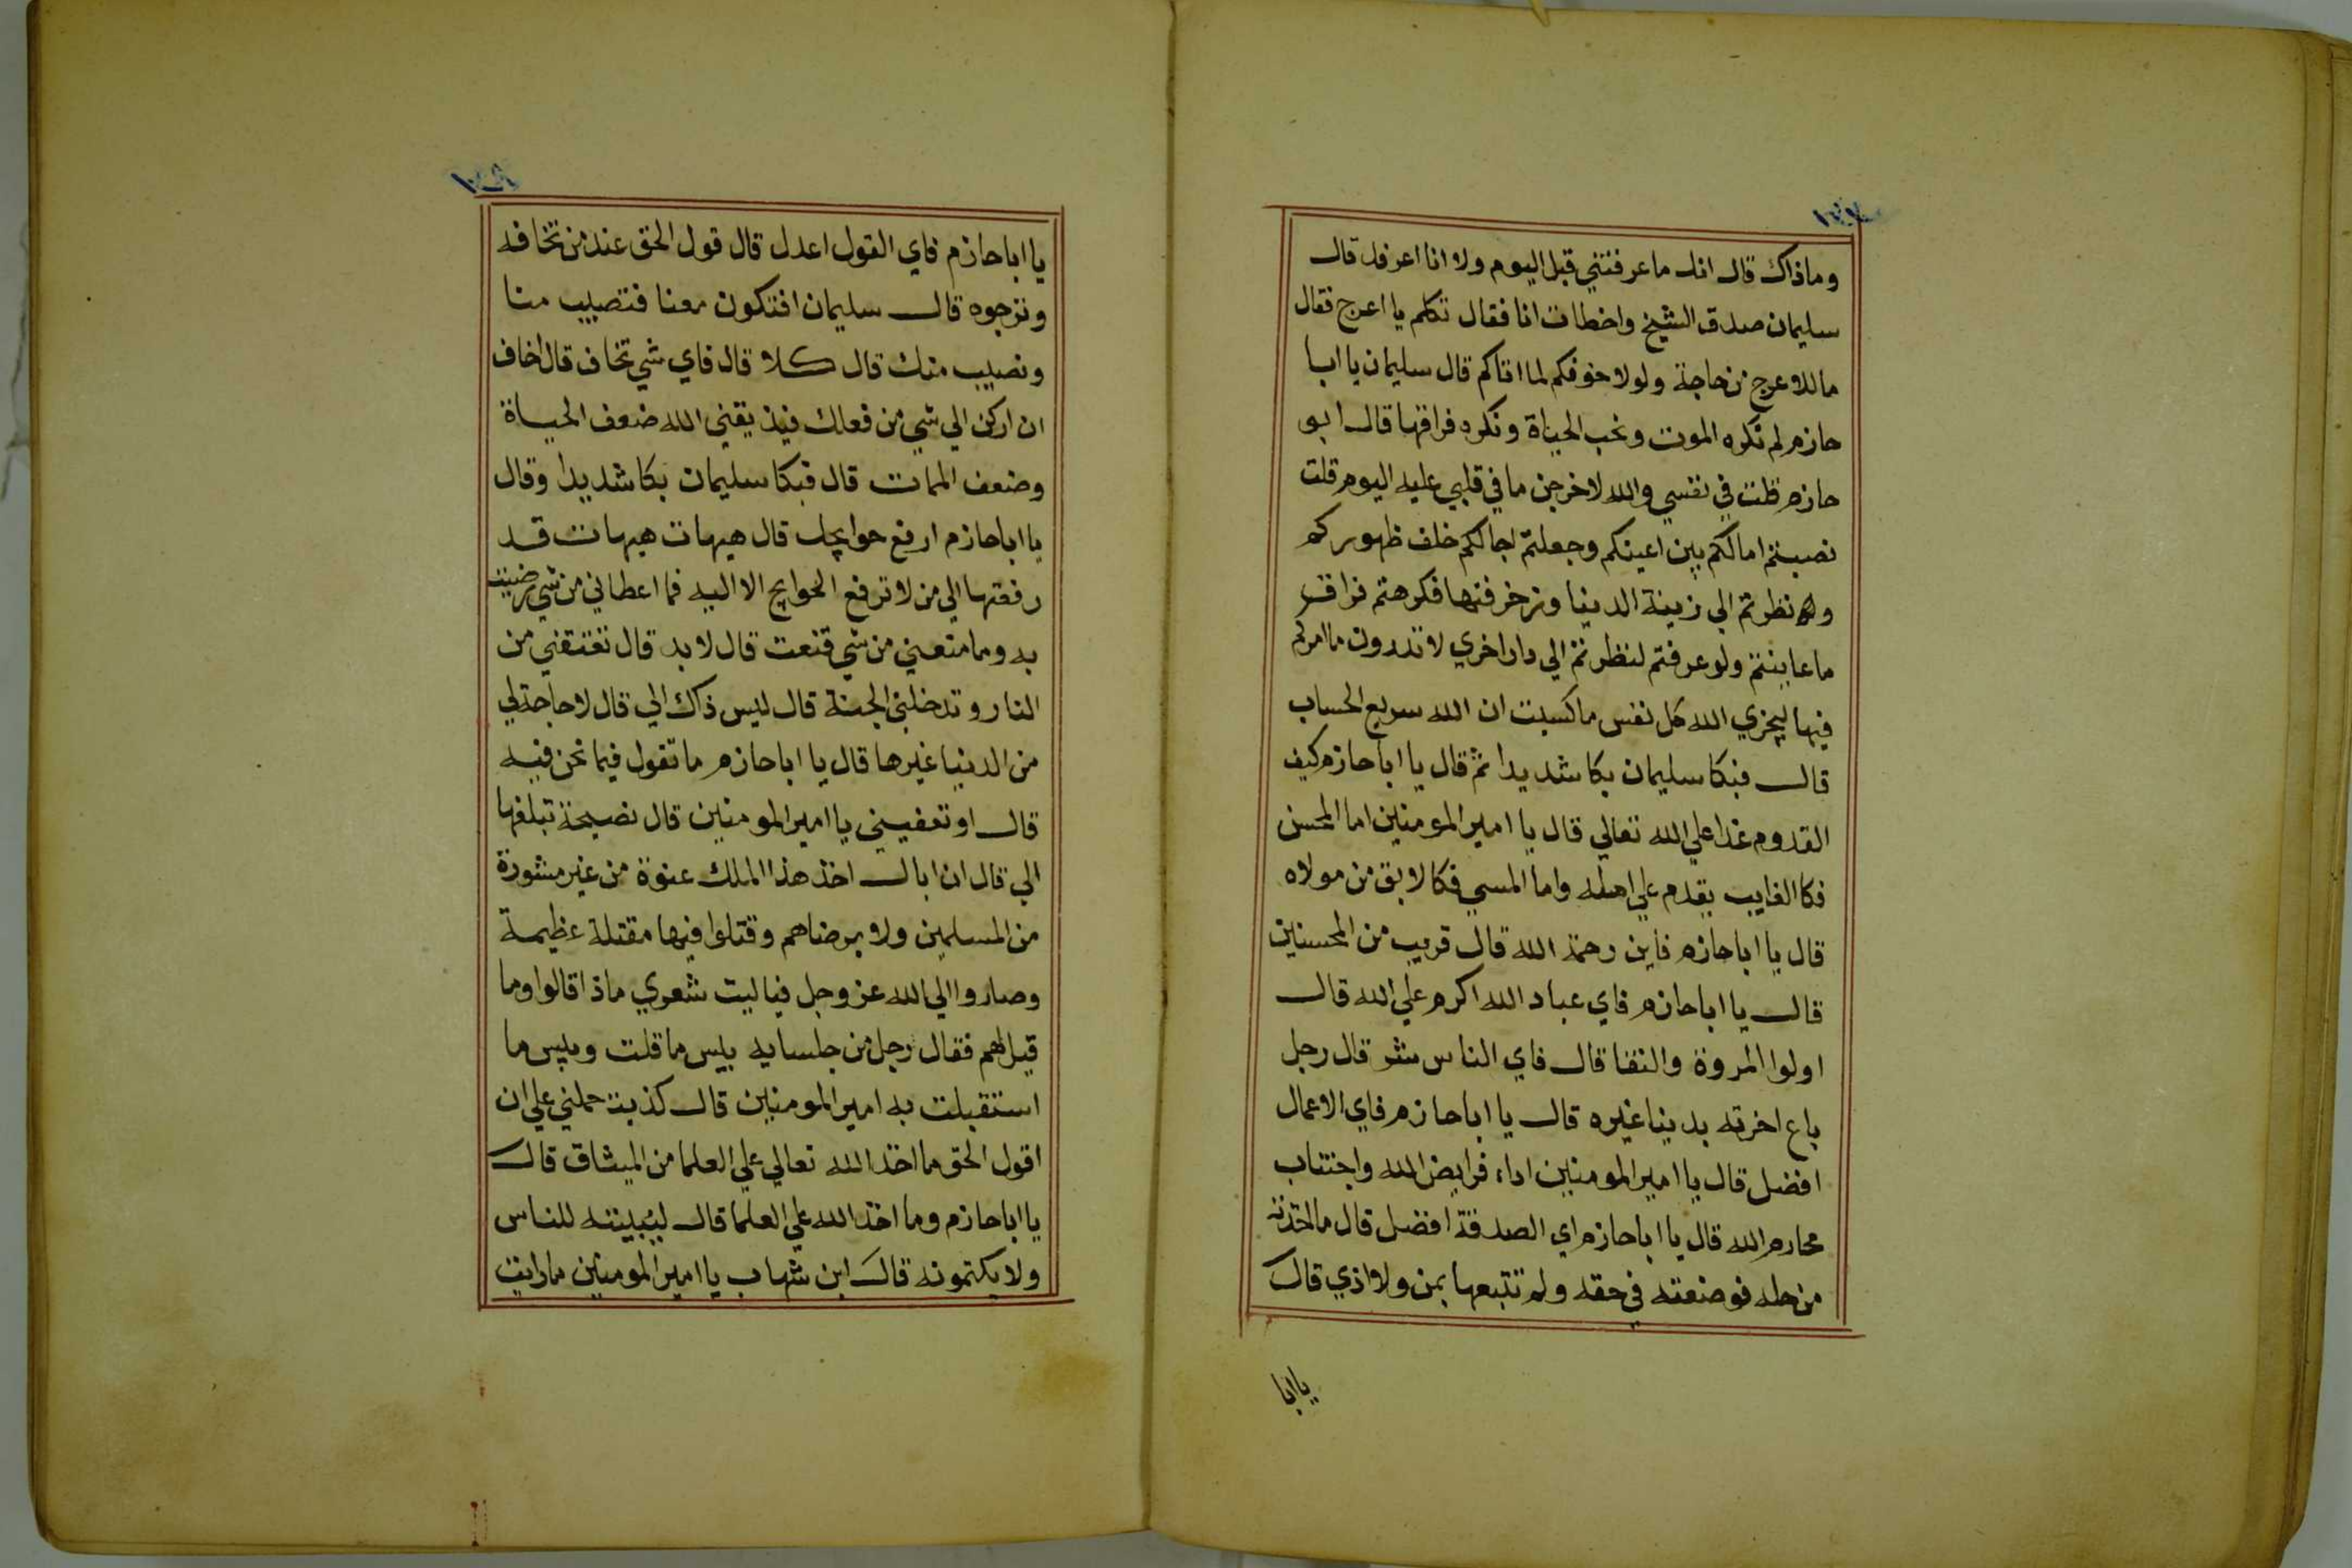 وماذاك قال انك ماعرفتني قبل اليوم ولا انا اعرفك قال
سليمان صدق الشيخ واخطات انا فقال تكلم يا اعرج فقال
ما للاعرج من حاجة ولولا خوفكم لما اتاكم قال سليمان يا ابا
حازم لم نكره الموت ونحب الحياة ونكره فراقها قال ابو
حازم قلت في نفسي والله لاخرجن ما في قلبي عليه اليوم قلت
نصبتم امالكم بين اعينكم وجعلتم اجالكم خلف ظهوركم
ونظرتم الي زينة الدنيا وزخرفتها فكرهتم فراق
ما عاينتم ولو عرفتم لنظرتم الي دار اخري لا تدرون ما امركم
فيها ليجزي الله كل نفس ما كسبت ان الله سريع الحساب
قال فبكا سليمان بكا شديدا ثم قال يا ابا حازم كيف
القدوم غدا علي الله تعالي قال يا امير المومنين اما المحسن
فكا الغايب يقدم علي اهله واما المسي فكالابق من مولاه
قال يا ابا حازم فاين رحمة الله قال قريب من المحسنين
قال يا ابا حازم فاي عباد الله اكرم علي الله قال
اولوا المروة والتقا قال فاي الناس شر قال رجل
باع اخرته بدينا غيره قال يا ابا حازم فاي الاعمال
افضل قال يا امير المومنين اداء فرايض الله واجتناب
محارم الله قال يا ابا حازم اي الصدقة افضل قال ما اخذته
من حله فوضعته في حقه ولم تتبعها بمن ولا اذي قال
يا ابا
يا ابا حازم فاي القول اعدل قال قول الحق عند من تخافه
وترجوه قال سليمان افتكون معنا فتصيب منا
ونصيب منك قال كلا قال فاي شي تخاف قال اخاف
ان اركن الي شي من فعلك فيذيقني الله ضعف الحياة
وضعف الممات قال فبكا سليمان بكا شديدا وقال
يا ابا حازم ارفع حوايجك قال هيهات هيهات قد
رفعتها الي من لا ترفع الحوايج الا اليه فما اعطاني من شي رضيت
به وما منعني من شي قنعت قال لابد قال تعتقني من
النار وتدخلني الجنة قال ليس ذاك الي قال لا حاجة لي
من الدينيا غيرها قال يا ابا حازم ما تقول فيما نحن فيه
قال اوتعفيني يا امير المومنين قال نصيحة تبلغها
الي قال ان اباك اخذ هذا الملك عنوة من غير مشورة
من المسلمين ولا برضاهم وقتلوا فيها مقتلة عظيمة
وصاروا الي الله عز وجل فيا ليت شعري ماذا قالوا وما
قيل لهم فقال رجل من جلسايه بيس ما قلت وبيس ما
استقبلت به امير المومنين قال كذبت حملني علي ان
اقول الحق ما اخذ الله تعالي علي العلما من الميثاق قال
يا ابا حازم وما اخذ الله علي العلما قال ليبيننه للناس
ولا يكتمونه قال ابن شهاب يا امير المومنين ما رايت